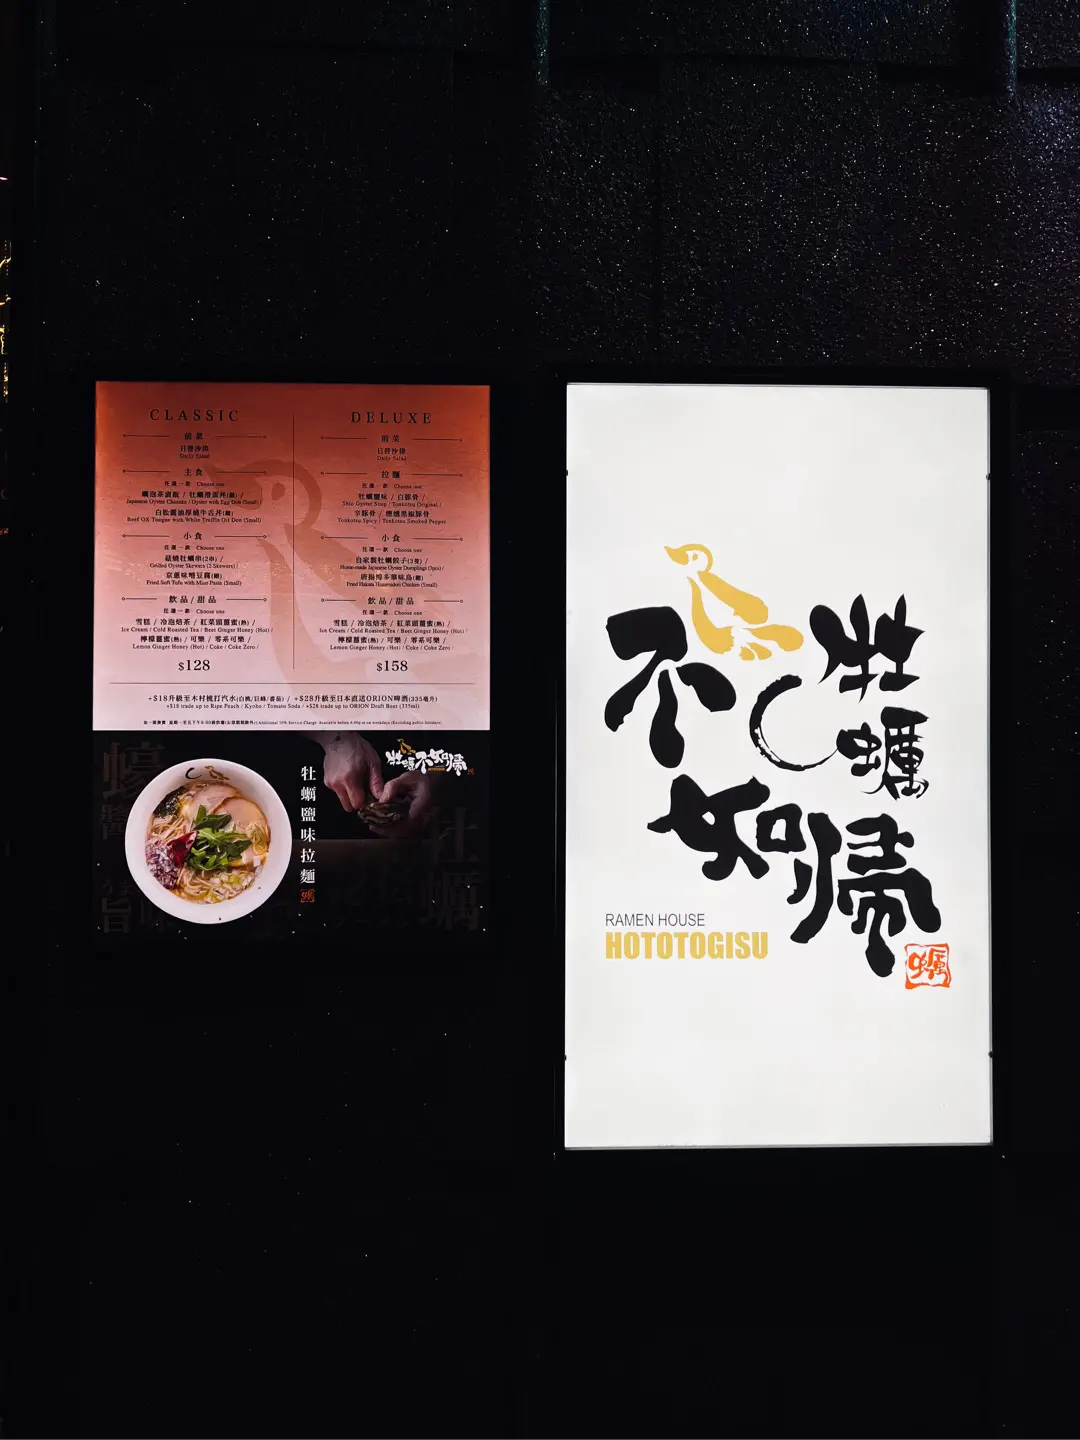 CLASSIC
前菜
日替沙律
Daily Salad
主食
任選一款 Choose one
蠣泡茶漬飯 / 牡蠣滑蛋丼(細) /
Japanese Oyster Chazuke / Oyster with Egg Don (Small) /
白松露油厚燒牛舌丼(細)
Beef OX Tongue with White Truffle Oil Don (Small)
小食
任選一款 Choose one
Grilled Oyster Skewers (2 Skewers) /
京蔥味噌豆腐(細)
Fried Soft Tofu with Miso Paste (Small)
飲品/甜品
任選一款 Choose one
雪糕 / 冷泡焙茶 / 紅菜頭薑蜜(熱) /
Ice Cream / Cold Roasted Tea / Beet Ginger Honey (Hot) /
檸檬薑蜜(熱) / 可樂 / 零系可樂 /
Lemon Ginger Honey (Hot) / Coke / Coke Zero /
$128
DELUXE
前菜
日替沙律
Daily Salad
拉麵
任選一款 Choose one
牡蠣鹽味 / 白豚骨 /
Shio Oyster Soup / Tonkotsu Original /
辛豚骨 / 煙燻黑椒豚骨
Tonkotsu Spicy / Tonkotsu Smoked Pepper
小食
任選一款 Choose one
自家製牡蠣餃子(3隻) /
Home-made Japanese Oyster Dumplings (3pcs) /
唐揚博多華味鳥(細)
Fried Hakata Hanamidori Chicken (Small)
飲品/甜品
任選一款 Choose one
雪糕 / 冷泡焙茶 / 紅菜頭薑蜜(熱) /
Ice Cream / Cold Roasted Tea / Beet Ginger Honey (Hot) /
檸檬薑蜜(熱) / 可樂 / 零系可樂 /
Lemon Ginger Honey (Hot) / Coke / Coke Zero /
$158
+$18升級至木村桃打汽水(白桃/巨峰/番茄) / +$28升級至日本直送ORION啤酒(335毫升)
+$18 trade up to Ripe Peach / Kyoho / Tomato Soda / +$28 trade up to ORION Draft Beer (335ml)
Additional 10% Service Charge. Available before 6:00p.m on weekdays (Excluding public holidays)
牡蠣不如帰
牡蠣鹽味拉麵
蠔
牡蠣
旨味
牡蠣
不如帰
RAMEN HOUSE
HOTOTOGISU
蠣